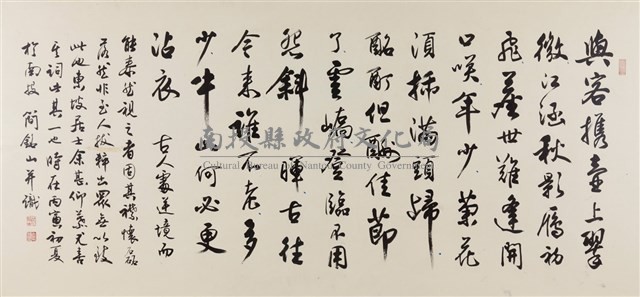 與客携壺上翠
微江涵秋影鴈初
飛塵世難逢開
口咲年少菊花
須插滿頭歸
酩酊但酬佳節
了雲嶠登臨不用
怨斜暉古往
今來誰不老多
少牛山何必更
沾衣 古人處逆境而
能泰然視之者因其襟懷磊
落然非至人出眾無以致
此也東坡居士余甚仰慕尤喜
其詞此其一也時在丙寅初夏
於南投 簡銘山并識
南投縣政府文化局
Cultural Bureau of Nantou County Government